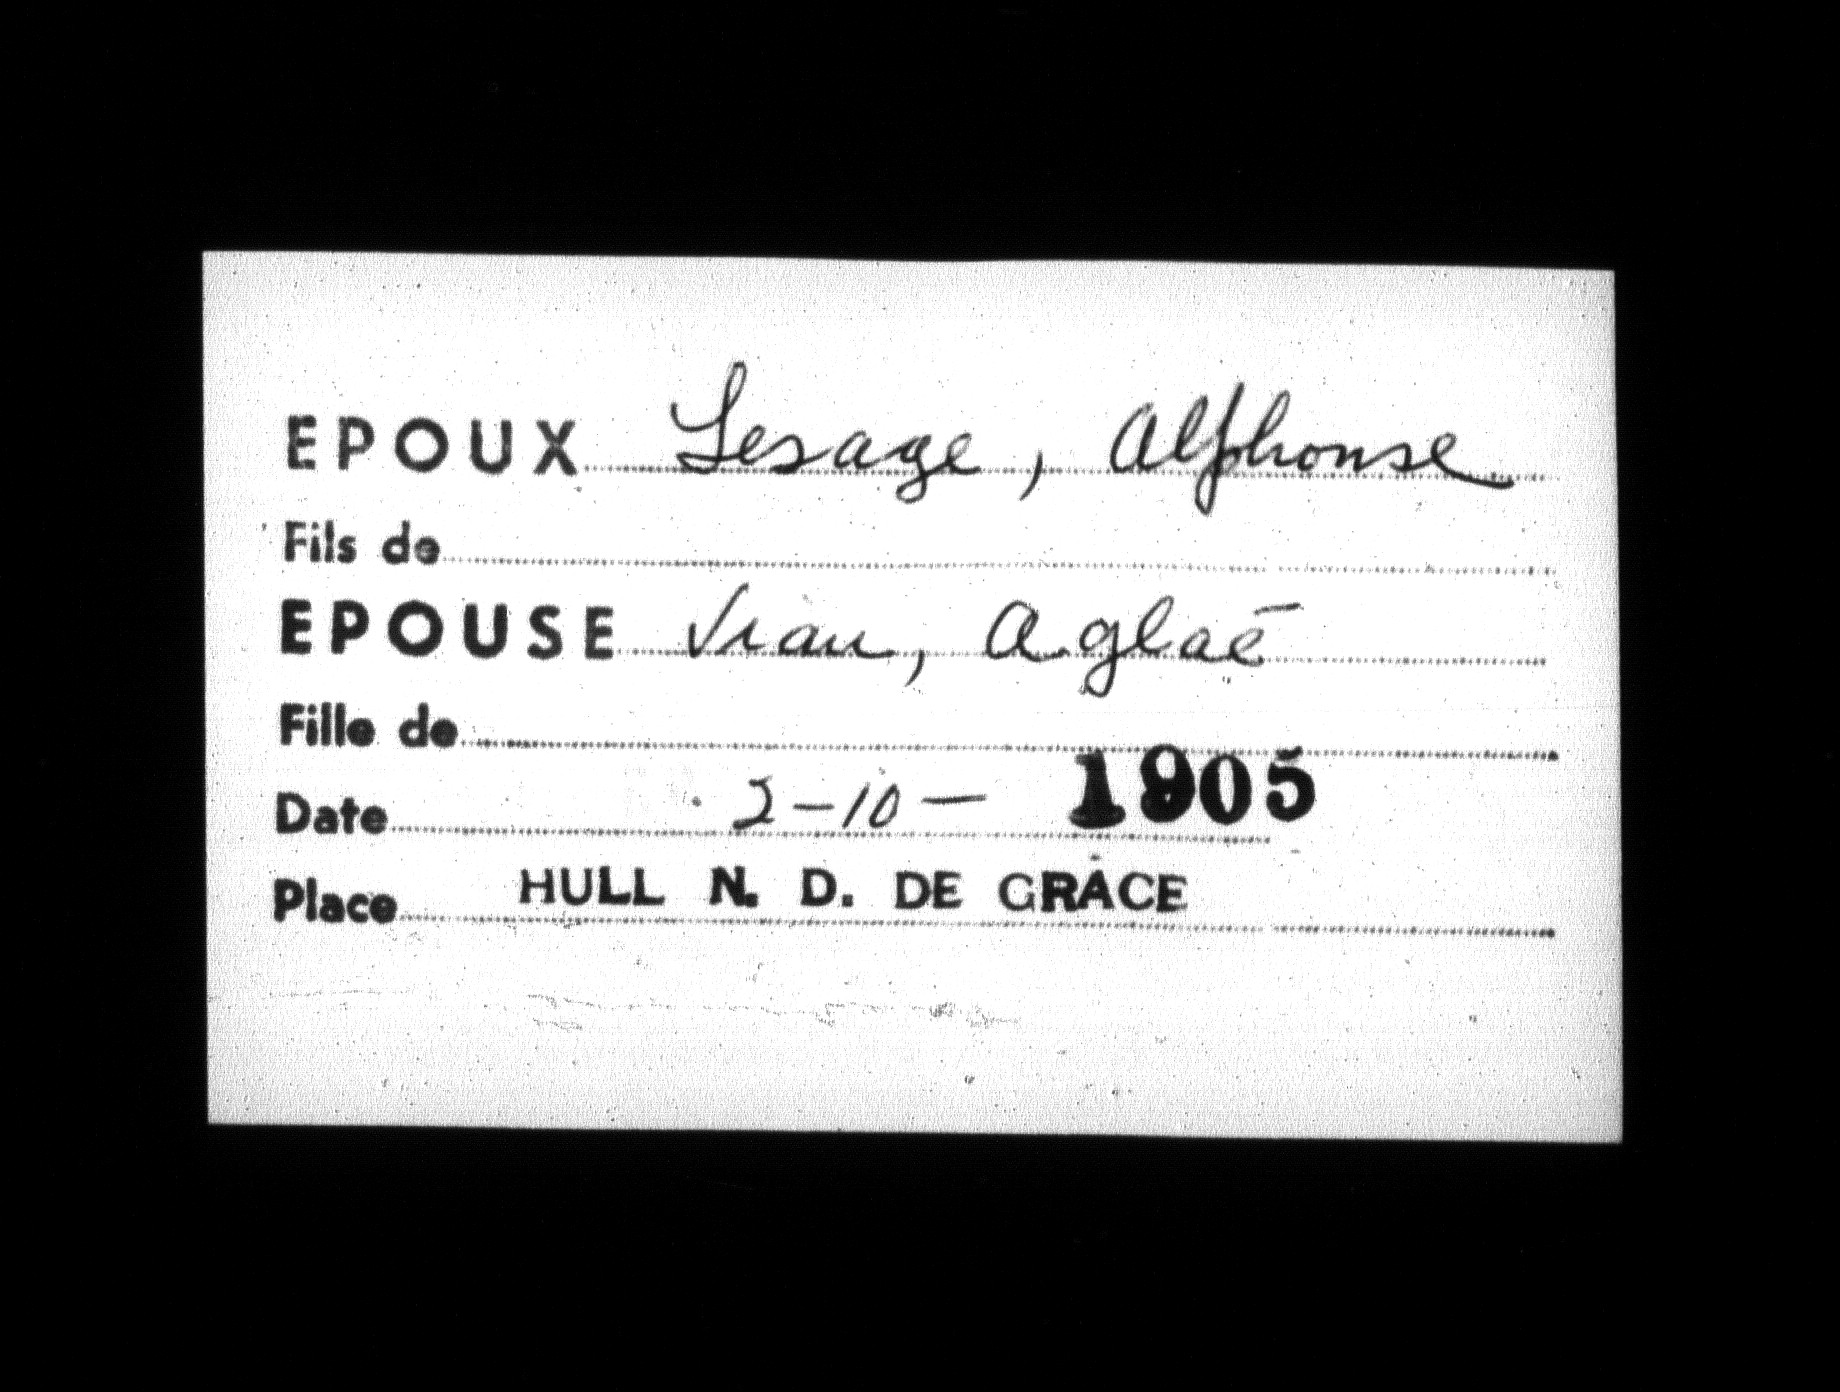 EPOUX Lesage, Alphonse
Fils de
EPOUSE Viau, Aglaé
Fille de
Date 2-10- 1905
Place HULL N. D. DE GRACE